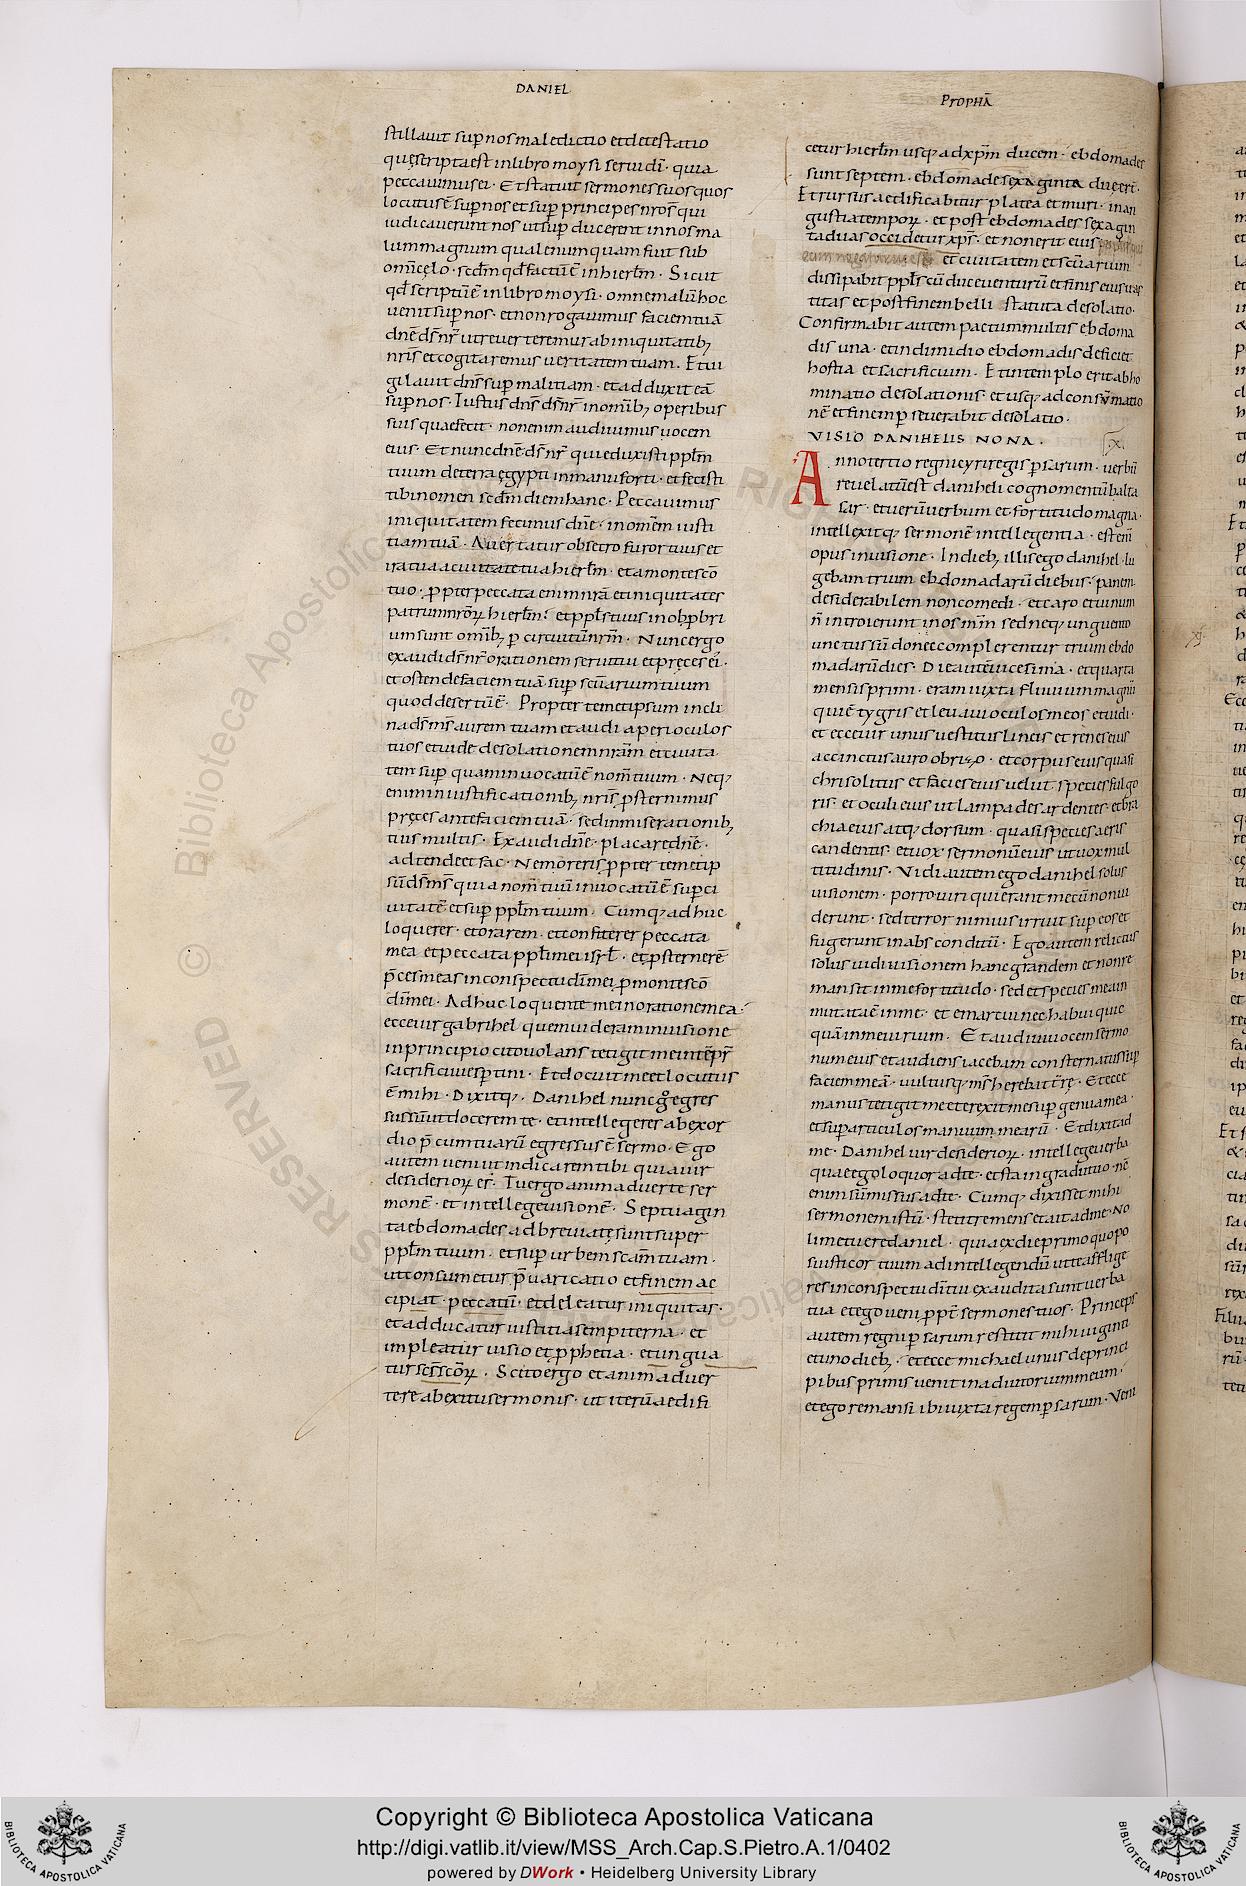 DANIEL
PropHA̅
stillauit sup̲ nos maledictio et detestatio
quę scripta est in libro moysi serui di̅ · quia
peccauimus ei · Et statuit sermones suos quos
locutus e̅ sup̲ nos et sup̲ principes nr̅os qui
iudicauerunt nos ut sup̲ducerent in nos ma
lum magnum quale numquam fuit sub
omi̅ cęlo · sedm̅ qd̅ factu̅ e̅ in hierlm̅ · Sicut
qd̅ scriptu̅ e̅ in libro moysi · omne malu̅ hoc
uenit sup̲ nos · et non rogauimus faciem tua̅
dn̅e ds̅ nr̅ ut reuerteremur ab iniquitatib;
nris̅ et cogitaremus ueritatem tuam · Et ui
gilauit dn̅s sup̲ malitiam · et adduxit ea̅
sup̲ nos · Iustus dn̅s ds̅ nr̅ in omi̅b; operibus
suis quae fecit · non enim audiuimus uocem
eius · Et nunc dn̅e ds̅ nr̅ qui eduxisti ppl̅m
tuum de terra ęgypti in manu forti · et fecisti
tibi nomen sedm̅ diem hanc · Peccauimus
iniquitatem fecimus dn̅e · in omne̅m iusti
tiam tua̅ · Auertatur obsecro furor tuus et
ira tua a ciuitate tua hierlm̅ · et a monte sc̅o
tuo · p̲pter peccata enim nr̅a et iniquitates
patrum nr̅oꝝ hierlm̅ · et ppl̅s tuus in obp̲bri
um sunt omi̅b; p̲ circuitu̅ nr̅m · Nunc ergo
exaudi ds̅ nr̅ orationem serui tui et pręces ei᾽ ·
et ostende faciem tua̅ sup̲ sc̅uarium tuum
quod desertu̅ e̅ · Propter temetipsum incli
na ds̅ ms̅ aurem tuam et audi aperi oculos
tuos et uide desolationem nr̅am et ciuita
tem sup̲ quam inuocatu̅ e̅ nom̅ tuum · Neq;
enim in iustificationib; nris̅ p̲sternimus
pręces ante faciem tua̅ · sed in miserationib;
tuis multis · Exaudi dn̅e · placare dn̅e ·
adtende et fac · Ne moreris p̲pter temetip
su̅ ds̅ ms̅ quia nom̅ tuu̅ inuocatu̅ e̅ sup̲ ci
uitate̅ et sup̲ ppl̅m tuum · Cumq; adhuc
loquerer · et orarem · et confiterer peccata
mea et peccata ppl̅i mei isrl̅ · et p̲sternere̅
p̅ces meas in conspectu di̅ mei p̲ monte sc̅o
di̅ mei · Adhuc loquente me in oratione mea ·
ecce uir gabrihel quem uideram in uisione
in principio cito uolans tetigit me in te̅pr̅
sacrificii uesp̲tini · Et docuit me et locutus
e̅ mihi · Dixitq; · Danihel nunc g̊ egres
sus su̅ ut docerem te · et intellegeres ab exor
dio p̅cum tuaru̅ egressus e̅ sermo · Ego
autem ueni ut indicarem tibi quia uir
desiderioꝝ es̅ · Tu ergo animaduerte ser
mone̅ · et intellege uisione̅ · Septuagin
ta ebdomades adbreuiatę sunt super
ppl̅m tuum · et sup̲ urbem sc̅am tuam ·
ut consumetur p̅uaricatio et finem ac
cipiat · peccatu̅ · et deleatur iniquitas ·
et adducatur iustitia sempiterna · et
impleatur uisio et p̲phetia · et ungua
tur sc̅s sc̅oꝝ · Scito ergo et animaduer
tere ab exitu sermonis · ut iteru̅ aedifi
cetur hierlm̅ usq; ad xp̅m ducem · ebdomades
sunt septem · ebdomades exaginta duę er̅ ·
Et rursus aedificabitur platea et muri · in an
gustia tempoꝝ · et post ebdomades sexagin
ta duas occidetur xp̅s · et non erit eius
et ciuitatem et sc̅uarium
dissipabit ppl̅s cu̅ duce uenturu̅ et finis eius uas
titas et post finem belli statuta desolatio ·
Confirmabit autem pactum multis ebdoma
dis una · et in dimidio ebdomadis deficiet
hostia et sacrificium · Et in templo erit abho
minatio desolationis et usq; ad consu̅matio
ne̅ et finem p̲seuerabit desolatio ·
VISIO DANIHELIS NONA · X
Anno tertio regni cyri regis p̲sarum · uerbu̅
reuelatu̅ est daniheli cognomentu̅ balta
sar · et ueru̅ uerbum et fortitudo magna ·
intellexitq; sermone̅ intellegentia · est eni̅
opus in uisione · In dieb; illis ego danihel lu
gebam trium ebdomadaru̅ diebus · panem
desiderabilem non comedi · et caro et uinum
n̅ introierunt in os m̅m sed neq; unguento
unctus su̅ donec complerentur trium ebdo
madaru̅ dies · Die aute̅ uicesima · et quarta
mensis primi · eram iuxta fluuium magnu̅
qui e̅ tygris et leuaui oculos meos et uidi ·
et ecce uir unus uestitus lineis et renes eius
accinctus auro obrizo · et corpus eius quasi
chrisolitus et facies eius uelut species fulgo
ris · et oculi eius ut lampades ardentes · et bra
chia eius atq; dorsum · quasi species aeris
candentis · et uox sermonu̅ eius ut uox mul
titudinis · Vidi autem ego danihel solus
uisionem · porro uiri qui erant mecu̅ non ui
derunt · sed terror nimius irruit sup̲ eos et
fugerunt in absconditu̅ · Ego autem relictus
solus uidi uisionem hanc grandem et non re
mansit in me fortitudo · sed et species mea in
mutata e̅ in me · et emarcui nec habui quic
qua̅ in me uirium · Et audiui uocem sermo
num eius et audiens iacebam consternatus sup̲
faciem mea̅ · uultusq; ms̅ herebat t̅rę · Et ecce
manus tetigit me et erexit me sup̲ genua mea ·
et sup̲ articulos manuum mearu̅ · Et dixit ad
me · Danihel uir desiderioꝝ · intellege uerba
quae ego loquor ad te · et sta in gradu tuo · nc̅
enim su̅ missus ad te · Cumq; dixisset mihi
sermonem istu̅ · steti tremens et ait ad me · No
li metuere daniel · quia ex die primo quo po
suisti cor tuum ad intellegendu̅ ut te afflige
res in conspectu di̅ tui exaudita sunt uerba
tua et ego ueni p̲pt̅ sermones tuos · Princeps
autem regni p̲sarum restitit mihi uiginti
et uno dieb; · et ecce michael unus de princi
pibus primis uenit in adiutorium meum ·
et ego remansi ibi iuxta regem p̲sarum · Veni
xj
© Biblioteca Apostolica Vaticana ALL RIGHTS RESERVED
BIBLIOTECA APOSTOLICA VATICANA
Copyright © Biblioteca Apostolica Vaticana
http://digi.vatlib.it/view/MSS_Arch.Cap.S.Pietro.A.1/0402
powered by DWork • Heidelberg University Library
BIBLIOTECA APOSTOLICA VATICANA